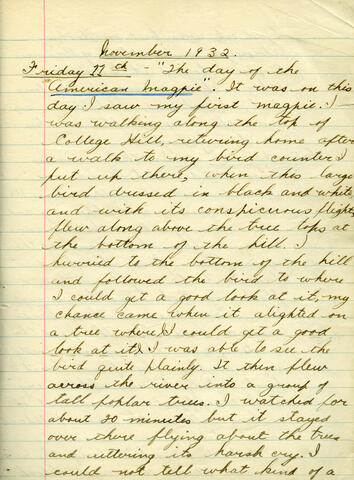 November 1932.
Friday 11th - "The day of the
American Magpie". It was on this
day I saw my first magpie. I
was walking along the top of
College Hill, returing home after
a walk to my bird counter I
put up there, when this large
bird dressed in black and white
and with its conspicuous flight,
flew along above the tree tops at
the bottom of the hill. I
hurried to the bottom of the hill
and followed the bird to where
I could get a good look at it, my
chance came when it alighted on
a tree where I could get a good
look at it I was able to see the
bird quite plainly. It then flew
across the river into a group of
tall poplar trees. I watched for
about 20 minutes but it stayed
over there flying about the trees
and uttering its harsh cry. I
could not tell what kind of a